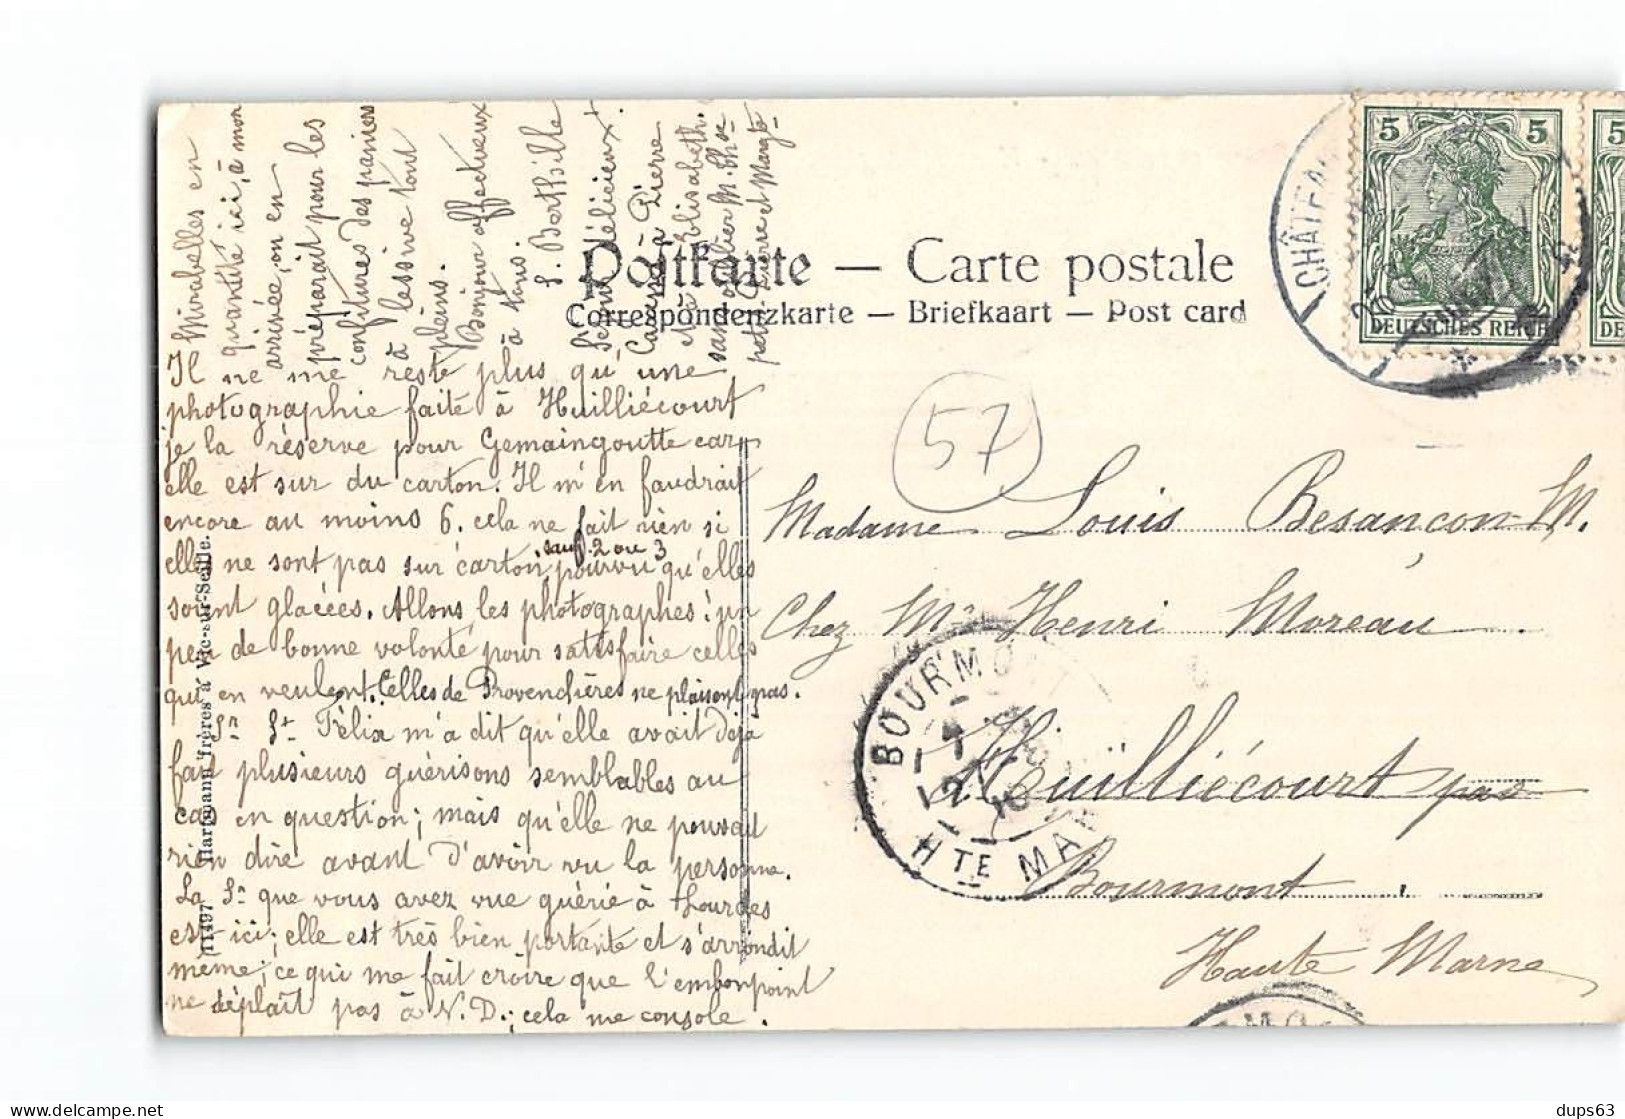 Mirabelles en
quantité ici, à mon
arrivée, on en
préparait pour les
confitures des paniers
à lessive tout
pleins.
Bonjour affectueux
à tous.
S. Berthille
délicieux!
Pierre
à Elisabeth.
sans oublier M. Th.se
Pierre et Margte
Postkarte — Carte postale
Correspondenzkarte — Briefkaart — Post card
5 5
DEUTSCHES REICH
5
CHÂTEAU
Il ne me reste plus qu'une
photographie faite à Huilliécourt
je la réserve pour Gemaingoutte car
elle est sur du carton. Il m'en faudrait
encore au moins 6. cela ne fait rien si
elles ne sont pas sur carton, sauf 2 ou 3
pourvu qu'elles
soient glacées. Allons, les photographes! un
peu de bonne volonté pour satisfaire celles
qui en veulent. Celles de Provenchères ne plaisent pas.
Sr St Félix m'a dit qu'elle avait déjà
fait plusieurs guérisons semblables au
cas en question; mais qu'elle ne pouvait
rien dire avant d'avoir vu la personne.
La Sr que vous avez vue guérie à Lourdes
est ici; elle est très bien portante et s'arrondit
même; ce qui me fait croire que l'embonpoint
ne déplaît pas à N. D.; cela me console.
11497 Hartmann frères à Vic-sur-Seille.
57
Madame Louis Besançon-M.
Chez Mr Henri Moreau
Huilliécourt par
Bourmont
Haute Marne
BOURMO
HTE MAR